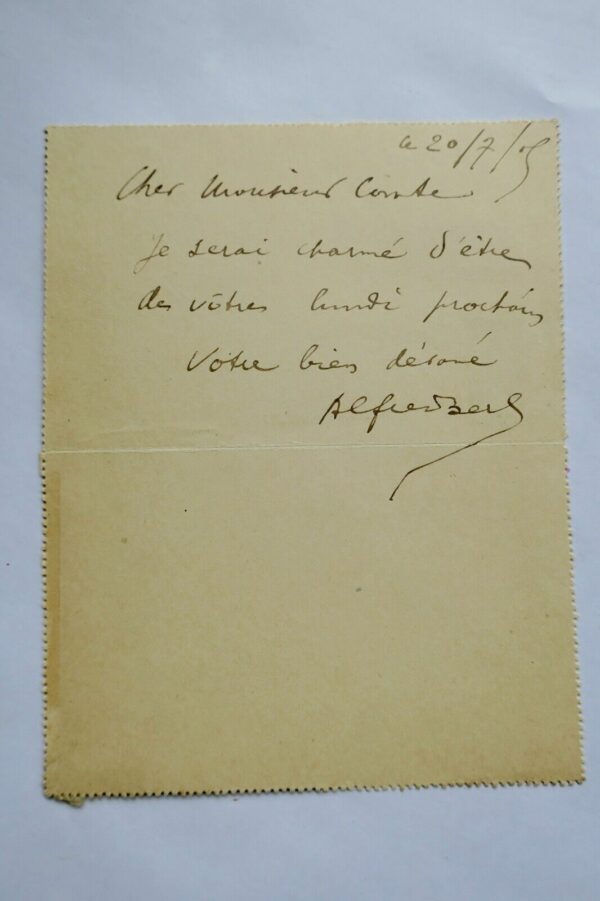 le 20/7/05
Cher Monsieur Comte
Je serai charmé d'être
des vôtres lundi prochain
Votre bien dévoué